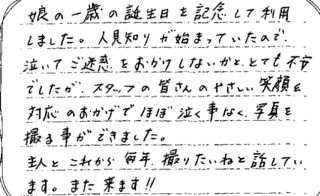 娘の一歳の誕生日を記念して利用
しました。人見知りが始まっていたので、
泣いてご迷惑をおかけしないかと、とても不安
でしたが、スタッフの皆さんのやさしい笑顔と
対応のおかげでほぼ泣く事なく、写真を
撮る事ができました。
主人とこれから毎年、撮りたいねと話してい
ます。また来ます!!